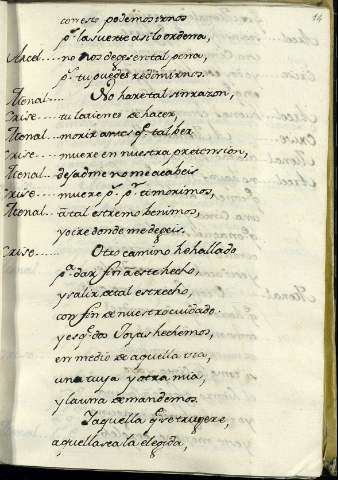 14
con esto podemos irnos
pᵉ la suerte asi lo ordena,
Arcel.... no nos dege en tal pena,
pᵉ tu puedes redimirnos.
Menal.... No hare tal sinrazon,
Crise.... tu la tienes de hacer,
Menal.... morir antes qᵉ tal ber
Crise.... muere en nuestra pretension,
Menal.... desadme no me acabeis
Crise.... muere pᵉ pʳ ti morimos,
Menal.... a tal estremo benimos,
yo ire donde me degeis.
Crise..... Otro camino he hallado
pᵃ dar fin a este hecho,
y salir de tal estrecho,
con fin de nuestro cuidado.
y es qᵉ dos Joyas hechemos,
en medio de aquella via,
una tuya y otra mia,
y la una demandemos.
Y aquella qᵉ se trugere,
aquella sea la elegida,